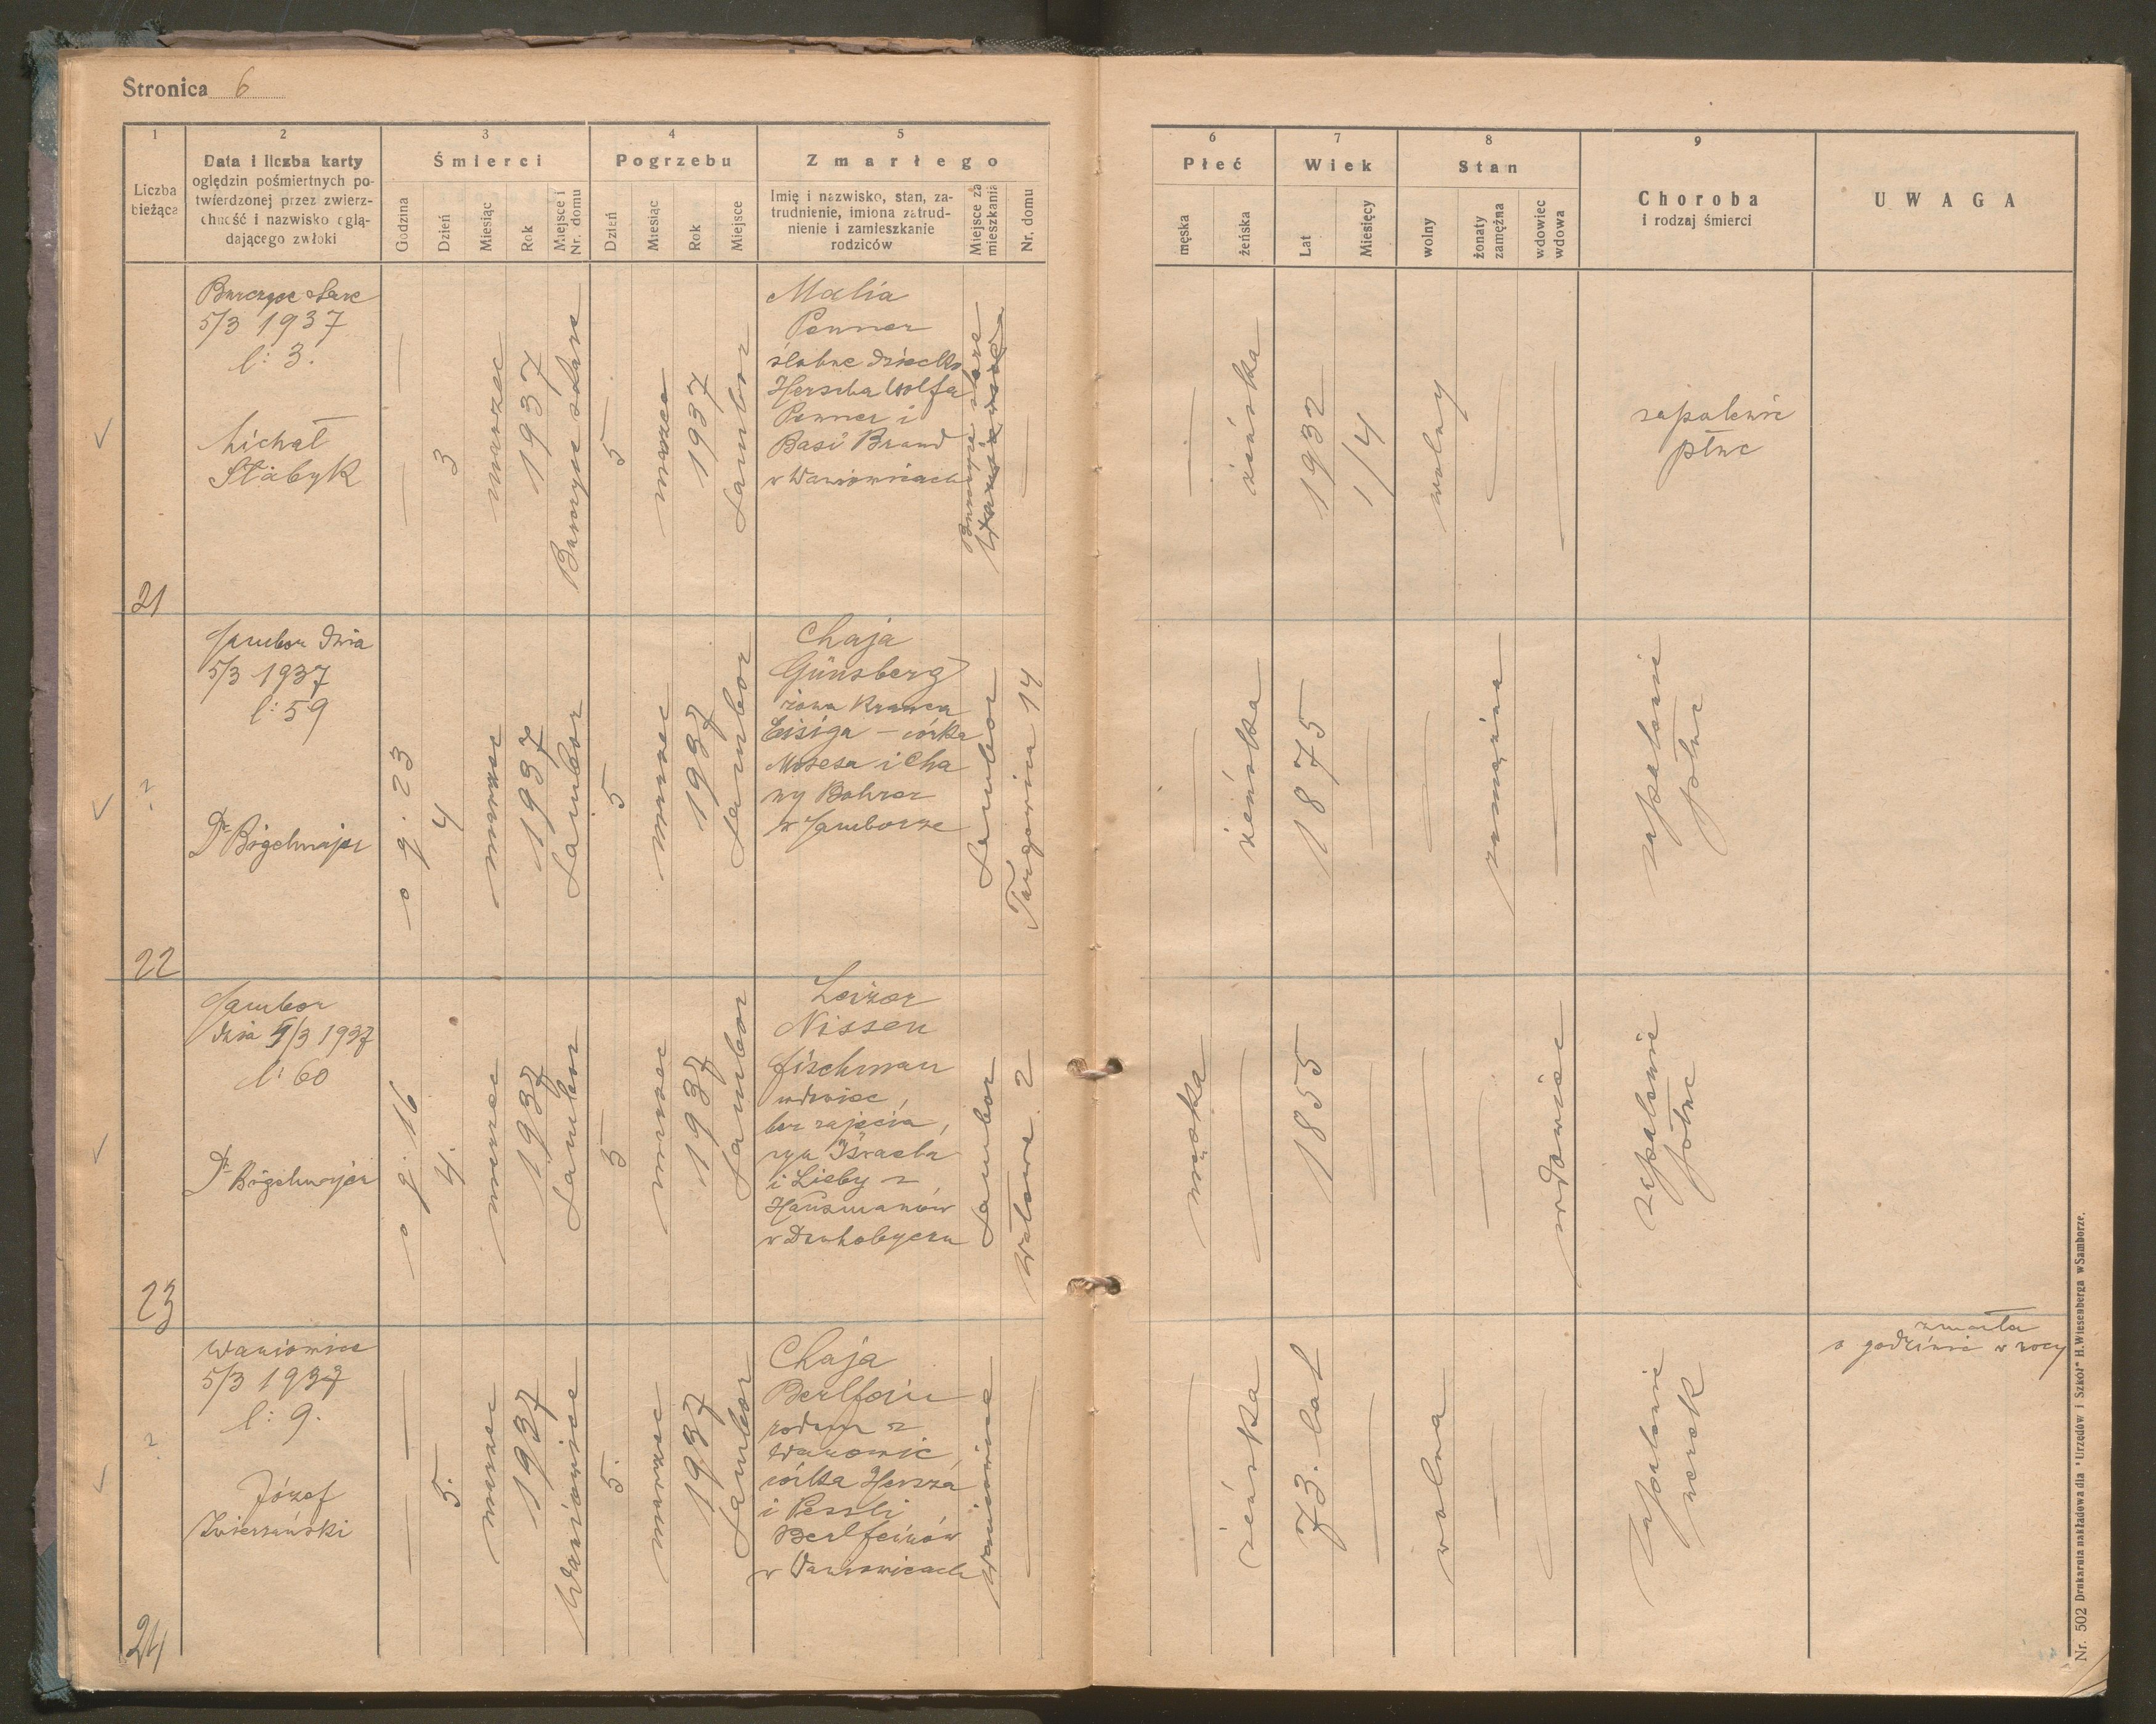 Stronica 6
1 2 3 4 5 6 7 8 9
Liczba bieżąca
Data i liczba karty
oględzin pośmiertnych po-
twierdzonej przez zwierz-
chność i nazwisko oglą-
dającego zwłoki
Śmierci
Godzina
Dzień
Miesiąc
Rok
Miejsce i
Nr. domu
Pogrzebu
Dzień
Miesiąc
Rok
Miejsce
Zmarłego
Imię i nazwisko, stan, za-
trudnienie, imiona zatrud-
nienie i zamieszkanie
rodziców
Miejsce za
mieszkania
Nr. domu
Płeć
męska
żeńska
Wiek
Lat
Miesięcy
Stan
wolny
żonaty
zamężna
wdowiec
wdowa
Choroba
i rodzaj śmierci
UWAGA
21
Burczyce stare
5/3 1937
l: 3.
Michał
Słabyk
3
marzec
1937
Burczyce stare
5
marzec
1937
Sambor
Malia
Penner
ślubne dziecko
Herscha Wolfa
Penner i
Basi Brand
w Waniowicach
Burczyce stare
żeńska
1932
1/4
wolny
zapalenie
płuc
22
Sambor dnia
5/3 1937
l: 59
Dr Bögelmajer
o g. 23
4
marzec
1937
Sambor
5
marzec
1937
Sambor
Chaja
Günsberg
żona Krawca
Eisiga – córka
Mosesa i Cha
ny Bohrer
w Samborze
Sambor
Targowica 14
żeńska
1875
zamężna
zapalenie
płuc
23
Sambor
dnia 5/3 1937
l: 60
Dr Bögelmajer
o g. 16
4.
marzec
1937
Sambor
5
marzec
1937
Sambor
Leizor
Nissen
Fischman
wdowiec,
bez zajęcia,
syn Israela
i Lieby z
Hausmanów
w Drohobyczu
Sambor
Wałowa 2
męska
1855
wdowiec
zapalenie
płuc
24
Waniowice
5/3 1937
l: 9.
Józef
Zwierzański
5.
marzec
1937
Waniowice
5.
marzec
1937
Sambor
Chaja
Berlfein
rodem z
Waniowic
córka Hersza
i Pessli
Berlfeinów
w Waniowicach
Waniowice
żeńska
73. lat
wolna
Zapalenie
nerek
zmarła
o godzinie w nocy
Nr. 502 Drukarnia nakładowa dla "Urzędów i Szkół" H. Wiesenberga w Samborze.